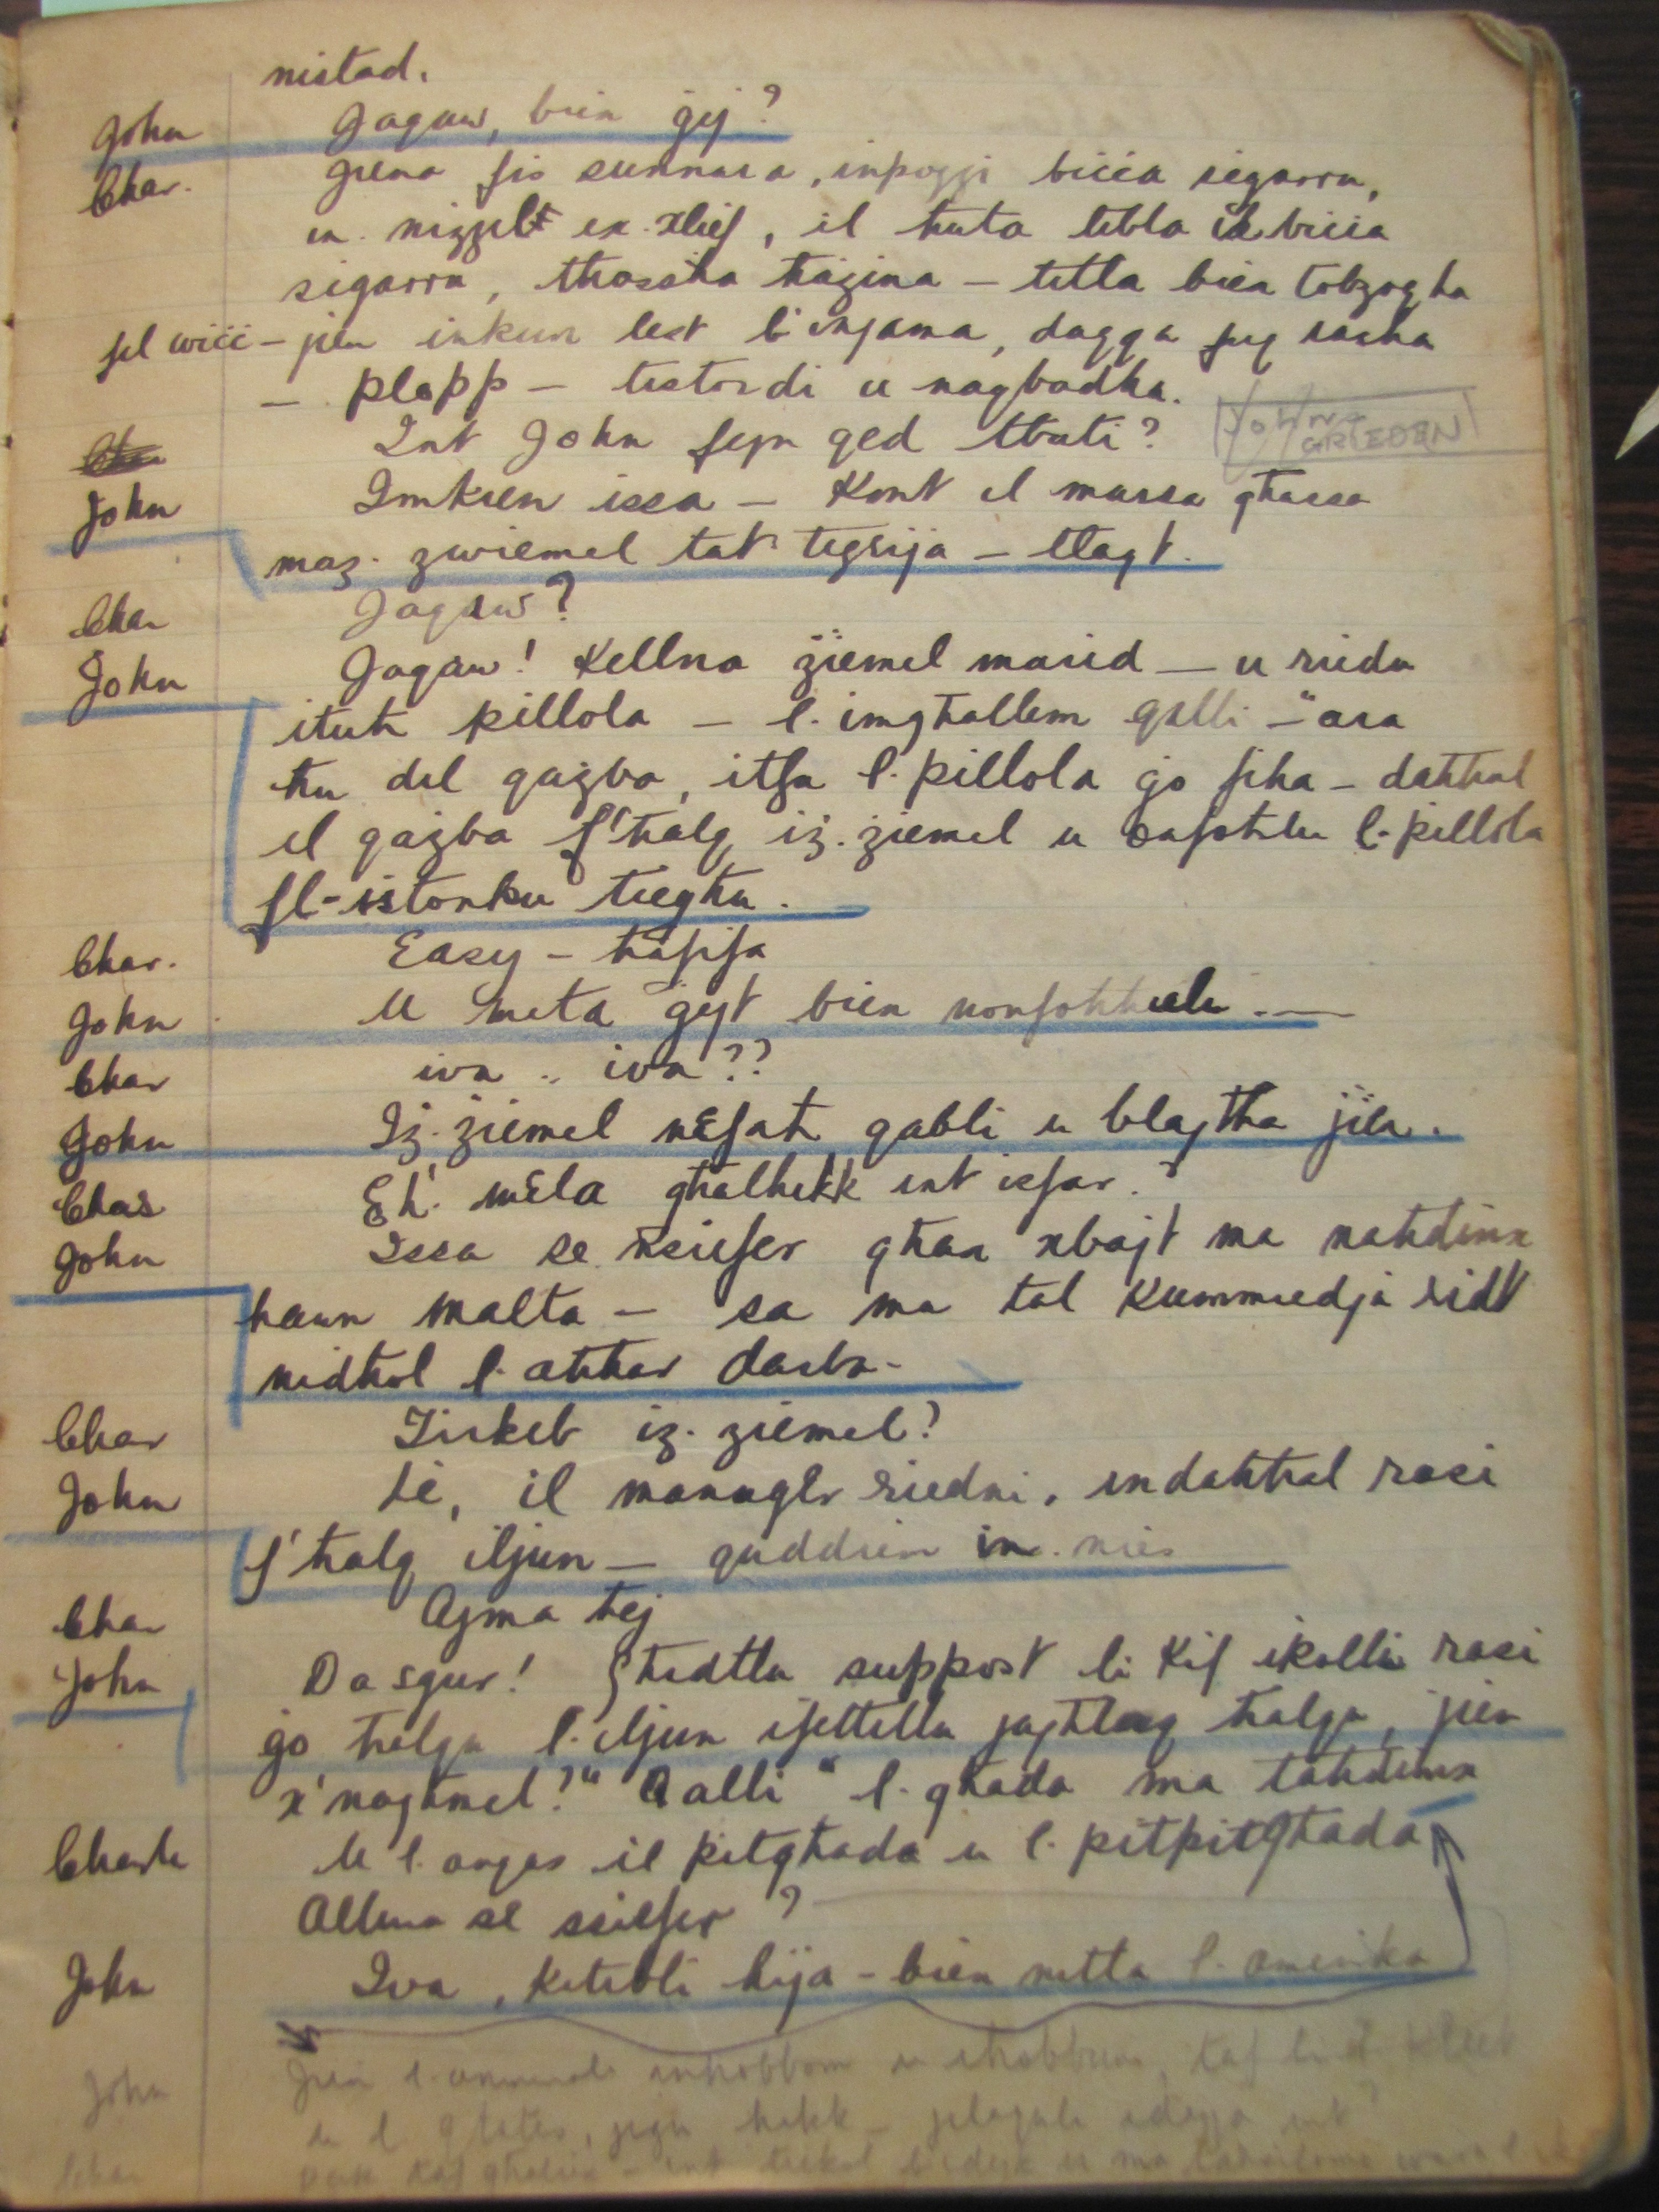 nistad.
John Jaqaw, biex ġej?
Char. Jiena fis sunnara, inpoġġi biċċa sigarru,
u nizzilt ix-xlief, il huta tibla il biċċa
sigarru, thossha hażina - titla biex tobzoqha
fil wiċċ - jien inkun lest b'injama, daqqa fuq rasha
- plapp - tistordi u naqbadha.
Int John fejn qed tbati? JOHN GRIEDEN
John Imkien issa - kont il mursa ghassa
maz-zwiemel tat tiġrija - tlaqt.
Char Jaqaw?
John Jaqaw! Kellna żiemel marid - u riedu
ituh pillola - l-imghallem qalli - "ara
hu dil qażba, itfa l-pillola ġo fiha - dahhal
il qażba f'halq iż-żiemel u onfohlu l-pillola
fl-istonku tieghu.
Char. Easy - hafifa
John U meta ġejt biex nonfohhielu .—
Char iva .. iva??
John Iż-żiemel nefah qabli u blajtha jien.
Char Eh! mela ghalhekk int isfar.
John Issa se nsiefer ghax xbajt ma nahdimx
hawn Malta - sa ma tal Kummiedja ridt
nidhol l-ahhar darba.
Char Tirkeb iż-żiemel?
John Le, il manager riedni, indahhal rasi
f'halq iljun - quddiem in-nies
Char Ajma hej
John Dasgur! Ghedtlu suppost li kif ikolli rasi
ġo halqu l-iljun ifettillu jaghlaq halqu, jien
x'naghmel?" Qalli "l-ghada ma tahdimx
Charle U l-anqas il pitghada u l-pitpitghada
Allura se ssiefer?
John Iva, kitibli hija - biex nitla l-Amerika
John Jien l-annimali inhobbhom
Char